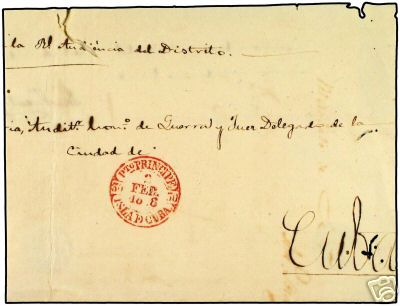 la Rl Audiencia del Distrito.
ria, Audit.r Hon.o de Guerra y Juez Delegado de la
Ciudad de
PTO PRINCIPE
2
FEB.
ISLA D CUBA
Cuba